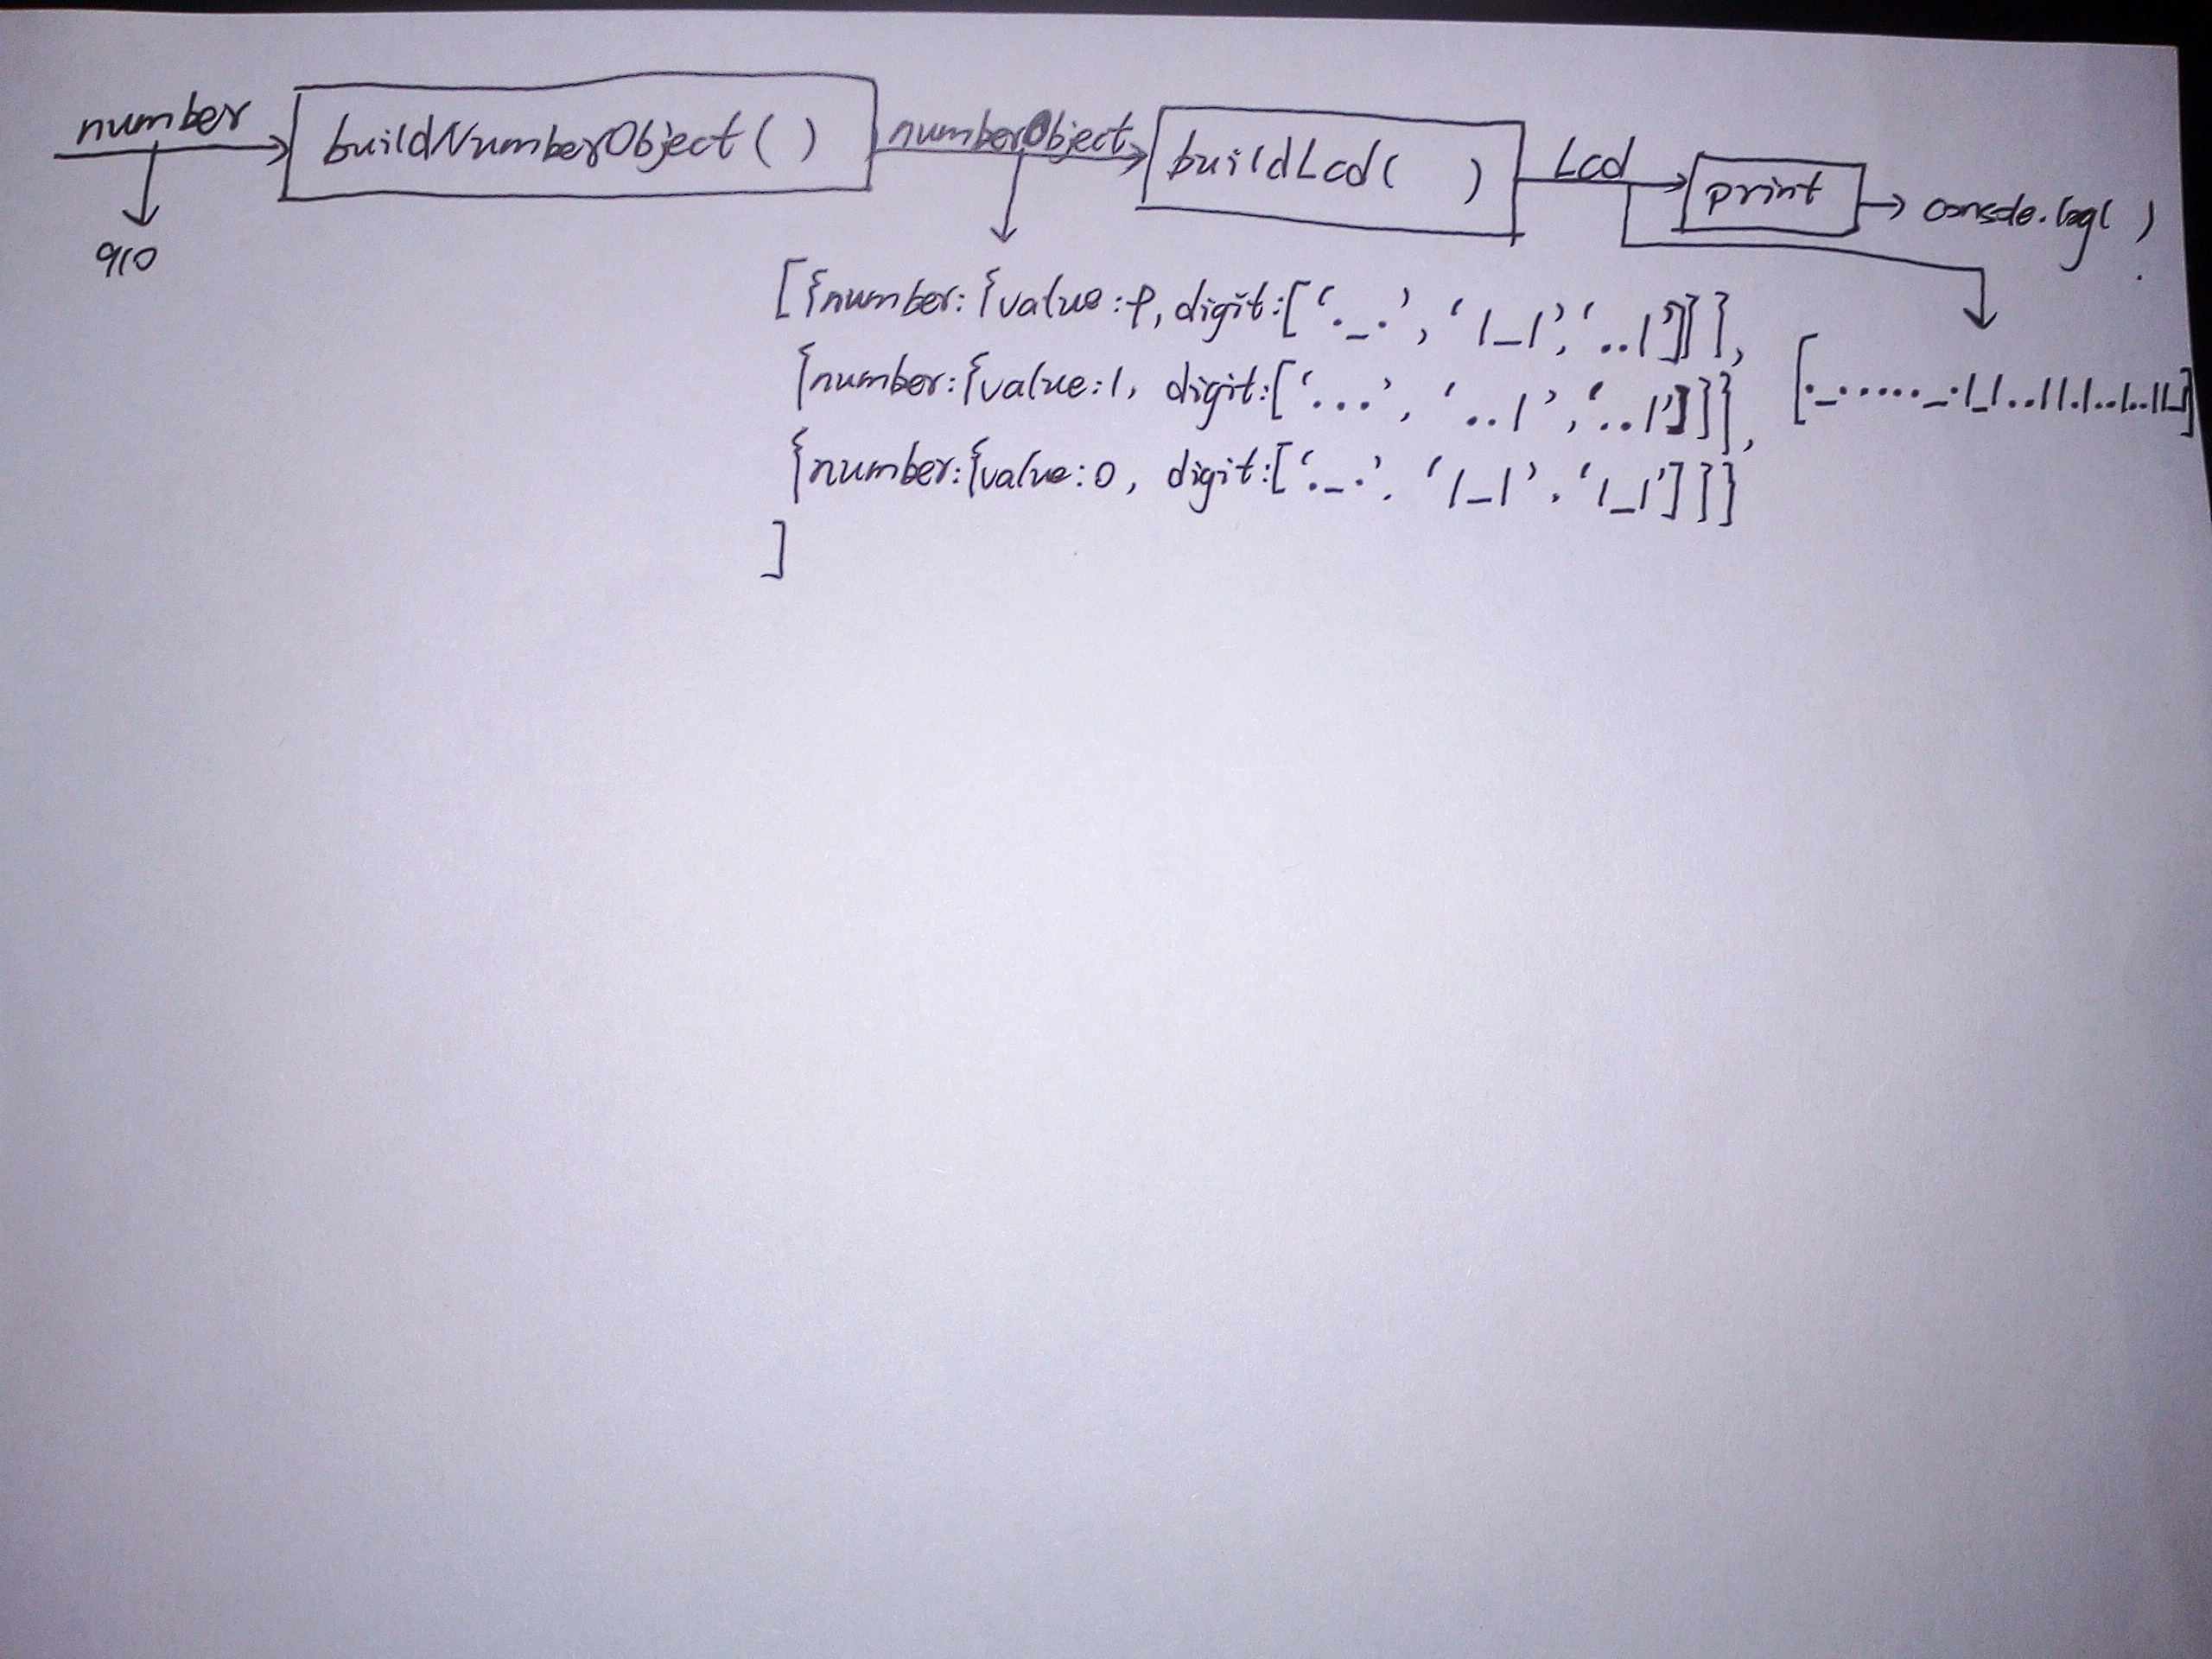 number buildNumberObject( ) numberObject buildLcd( ) Lcd print console.log( )
910
[{number:{value:9, digit:['._.', '|_|', '..|']}},
{number:{value:1, digit:['...', '..|', '..|']}},
{number:{value:0, digit:['._.', '|_|', '|_|']}}
]